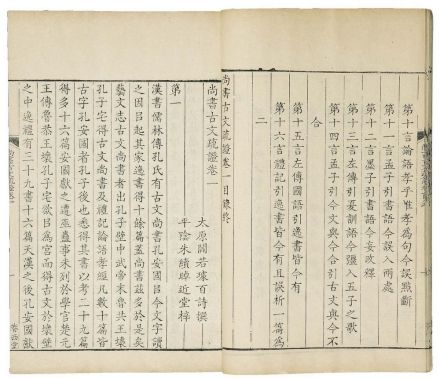 第十言論語孝乎惟孝為句今誤點斷
第十一言孟子引書語今誤入兩處
第十二言墨子引書語今妄改釋
第十三言左傳引夏訓語今彊入五子之歌
第十四言孟子引今文與今合引古文與今不
合
第十五言左傳國語引逸書皆今有
第十六言禮記引逸書皆今有且誤析一篇為
二
尚書古文疏證卷一目錄終
尚書古文疏證卷一
太原閻若璩百詩撰
平陰朱續晫近堂梓
第一
漢書儒林傳孔氏有古文尚書孔安國㠯今文字讀
之因㠯起其家逸書得十餘篇蓋尚書茲多於是矣
藝文志古文尚書者出孔子壁中武帝末魯共王壞
孔子宅得古文尚書及禮記論語孝經凡數十篇皆
古字孔安國者孔子後也悉得其書㠯考二十九篇
得多十六篇安國獻之遭巫蠱事未列於學官楚元
王傳魯恭王壞孔子宅欲㠯為宮而得古文於壞壁
之中逸禮有三十九書十六篇天漢之後孔安國獻
眷西堂